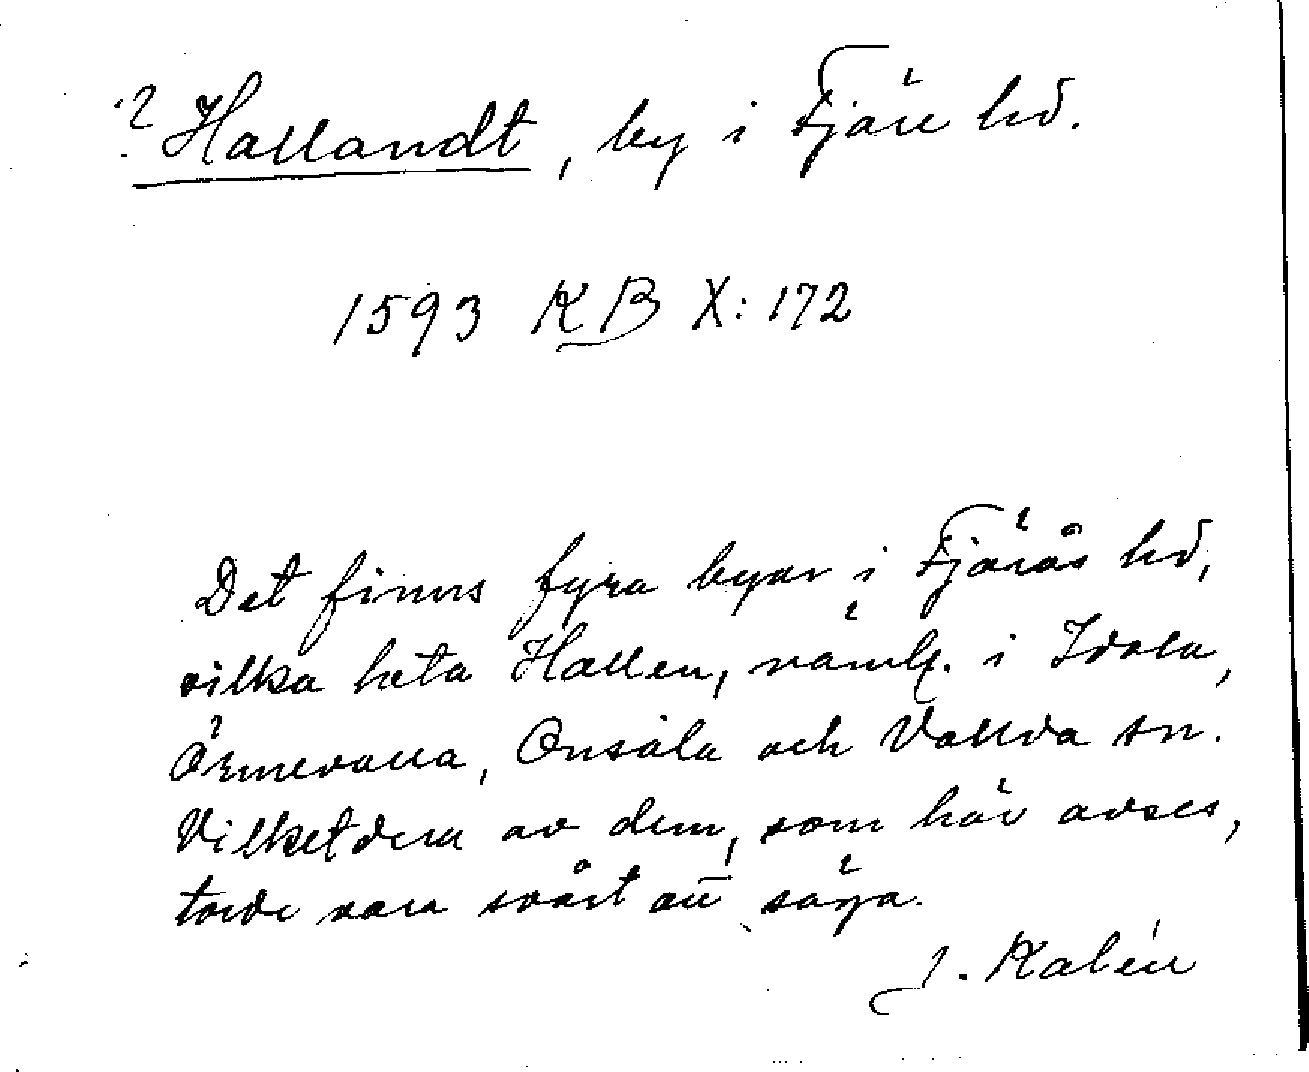 ? Hallandt, by i Fjäre hd.
1593 KB X: 172
Det finns fyra byar i Fjärås hd,
vilka heta Hallen, nämlg. i Idala,
Ärnevalla, Onsala och Vallda sn.
Vilketdera av dem, som här avses,
torde vara svårt att säga.
J. Kalén